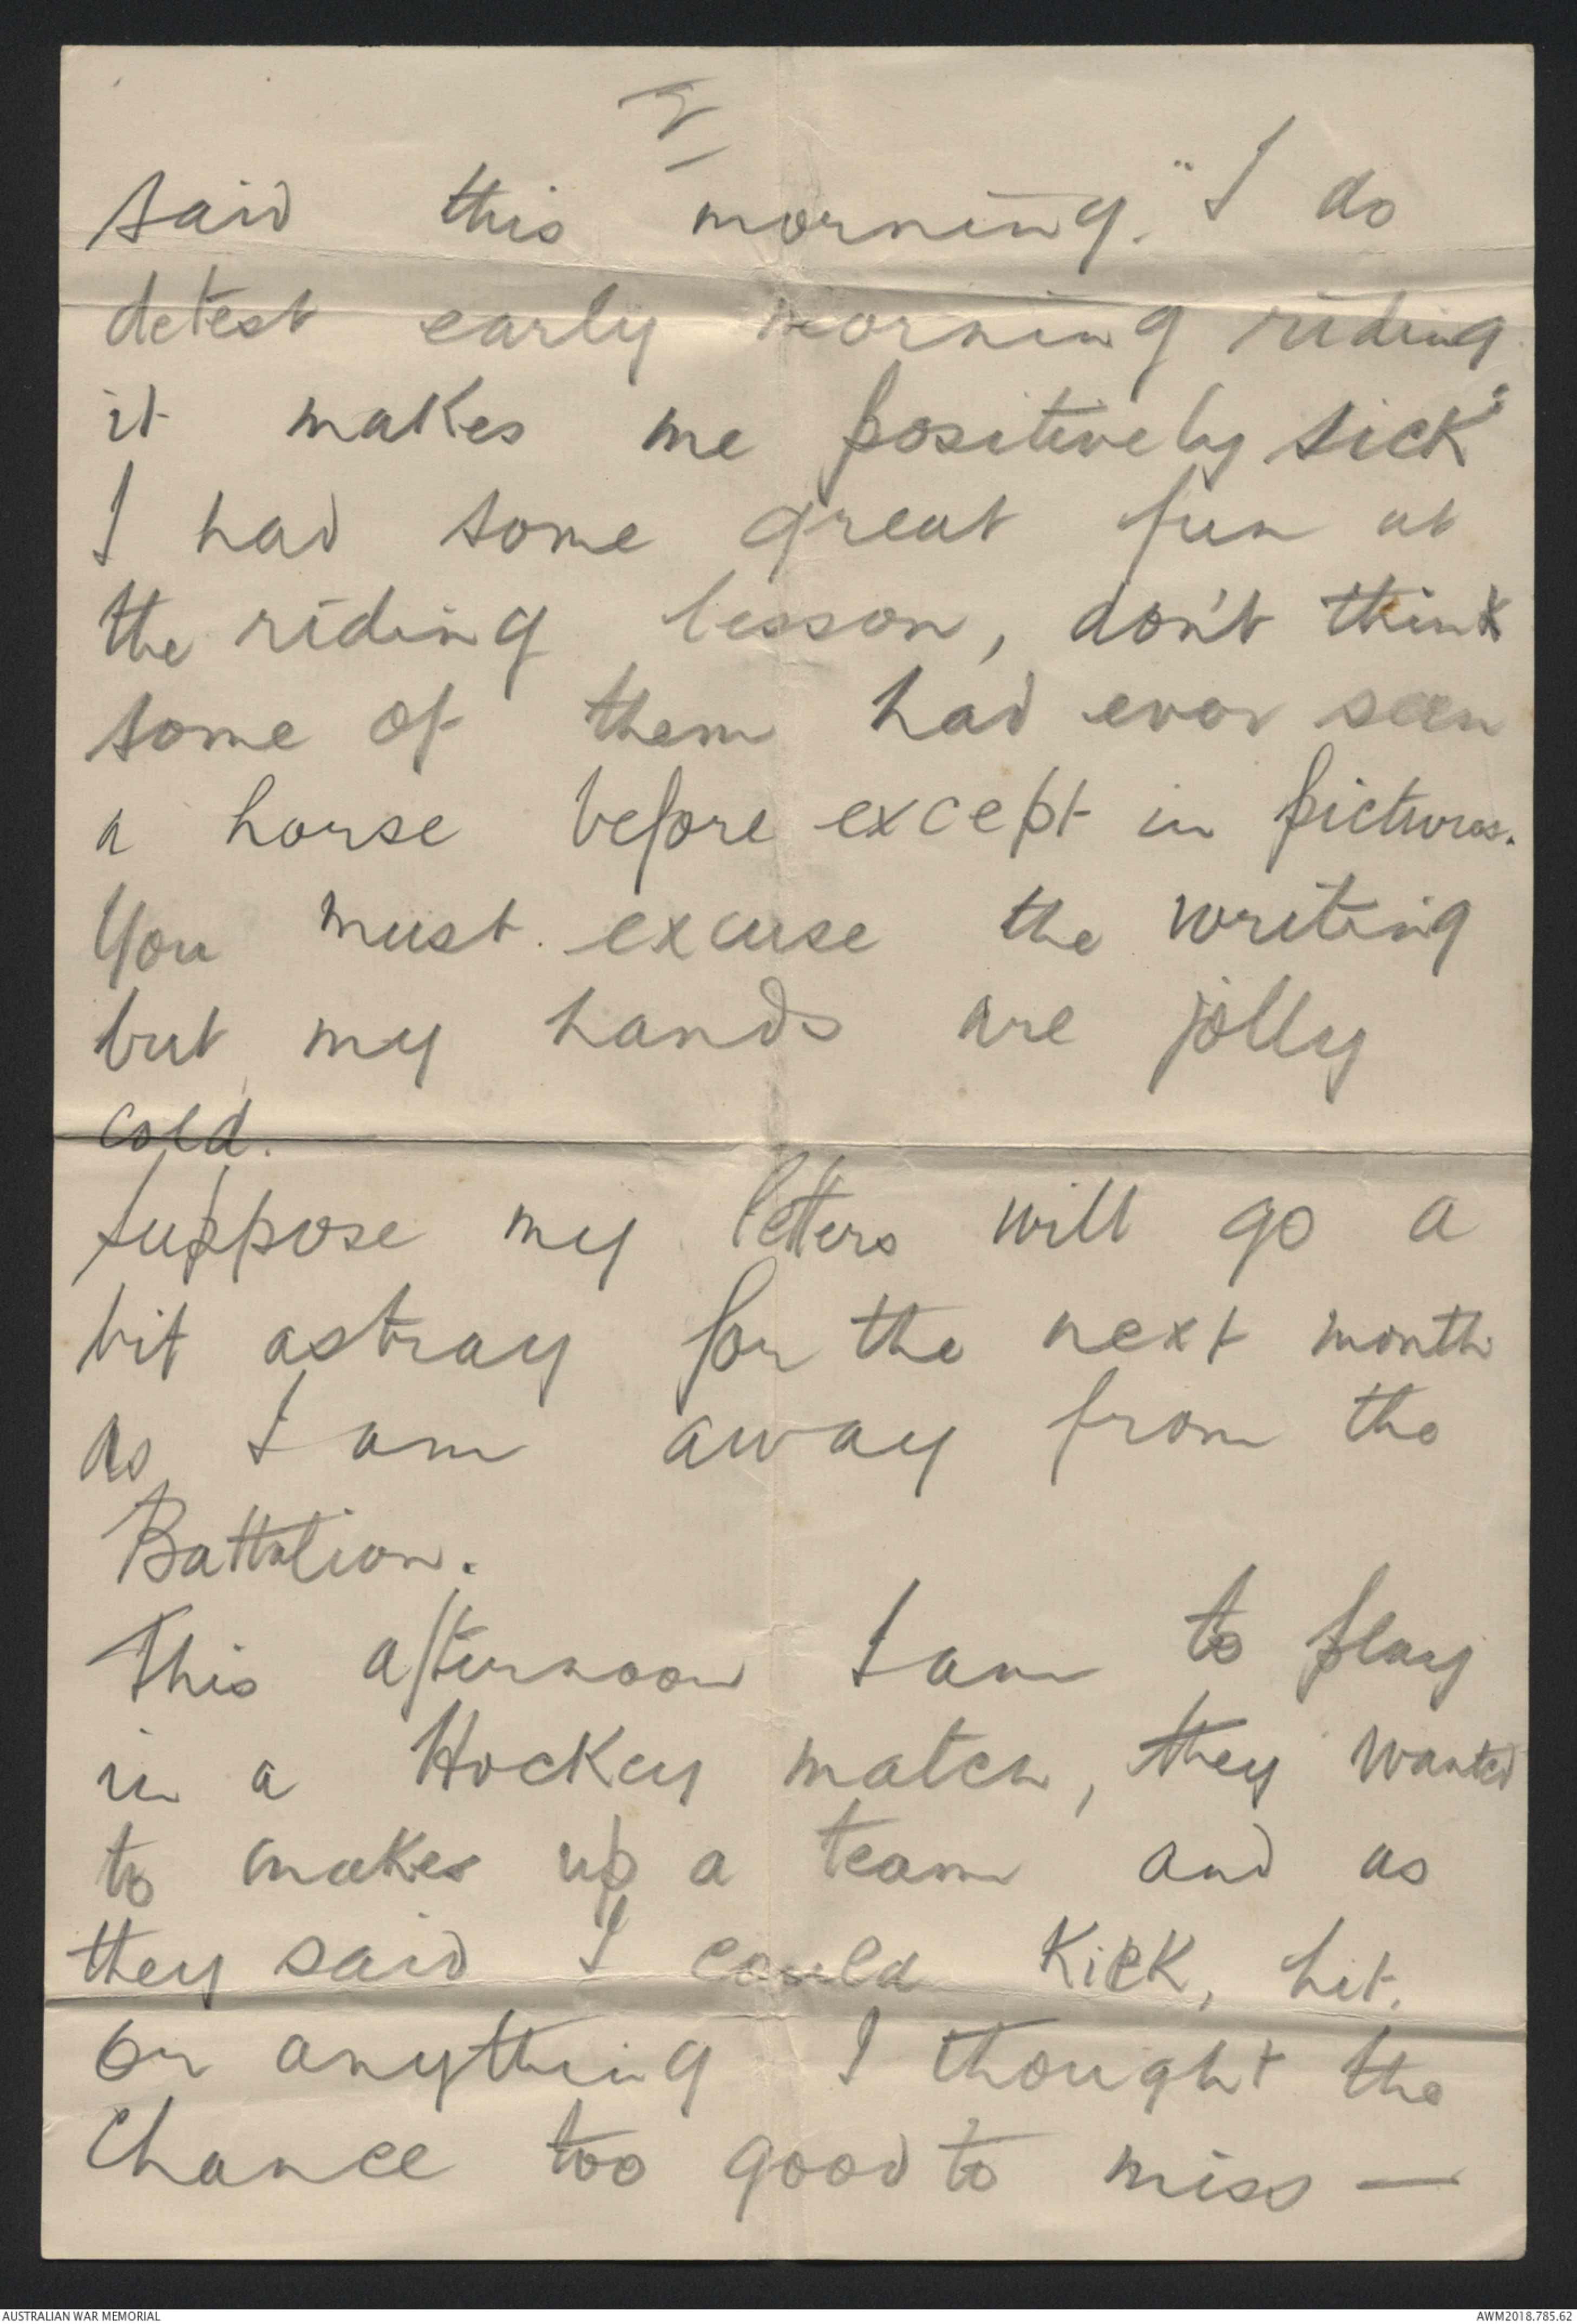 said this morning. "I do
detest early morning riding
it makes me positively sick"
I had some great fun at
the riding lesson, don't think
some of them had ever seen
a horse before except in pictures.
You must excuse the writing
but my hands are jolly
cold.
Suppose my letters will go a
bit astray for the next month
as I am away from the
Battalion.
This afternoon I am to play
in a Hockey match, they wanted
to makes up a team and as
they said I could kick, hit,
or anything I thought the
chance too good to miss —
AUSTRALIAN WAR MEMORIAL
AWM2018.785.62